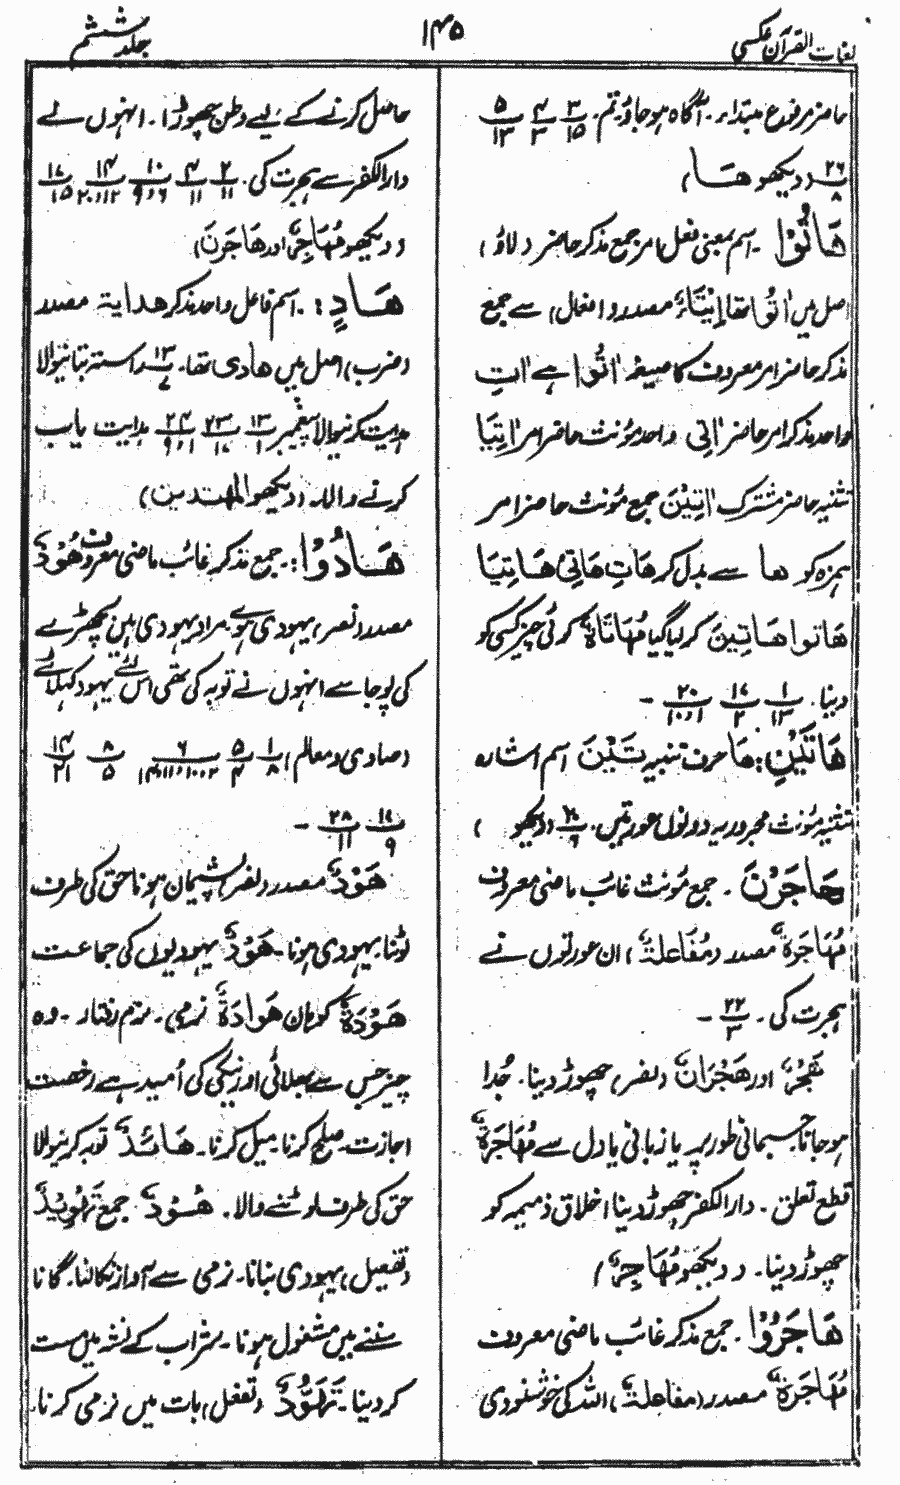 لغات القرآن عکسی
۱۴۵
جلد ششم
حاضر مرفوع مبتداء۔ آگاہ ہو جاؤ۔ تم۔ ۳/۱۵ ۴/۳ ۵/۱۳
۲۶/۸ (دیکھو ھَا)
ھَاتُوْا ۔ اسم بمعنی فعل امر جمع مذکر حاضر (لاؤ)
اصل میں اٰتُوا تھا اِیْتَاءٌ مصدر (افعال) سے جمع
مذکر حاضر امر معروف کا صیغہ اٰتُوْا ہے اٰتِ
واحد مذکر امر حاضر اٰتِی واحد مؤنث حاضر امر اٰتِیَا
تثنیہ حاضر مشترک اٰتِیْنَ جمع مؤنث حاضر امر
ہمزہ کو ھا سے بدل کر ھَاتِ ھَاتِی ھَاتِیَا
ھَاتوا ھَاتِینَ کر لیا گیا مُھَاتَاۃٌ کوئی چیز کسی کو
دینا۔ ۱/۱۳ ۱۷/۲ ۲۰/۱۰،۱ ۔
ھَاتَیْنِ: ھَا حرف تنبیہ تَیْنَ اسم اشارہ
تثنیہ مؤنث مجرور یہ دونوں عورتیں۔ ۲۰/۶ (دیکھو )
ھَاجَرْنَ ۔ جمع مؤنث غائب ماضی معروف
مُھَاجَرَۃٌ مصدر (مُفَاعلۃ) ان عورتوں نے
ہجرت کی ۔ ۲۲/۳ ۔
ھَجْرٌ اور ھَجْرَانٌ (نصر) چھوڑ دینا۔ جُدا
ہو جانا جسمانی طور پر یا زبانی یا دل سے مُھَاجَرَۃٌ
قطع تعلق ۔ دار الکفر چھوڑ دینا اخلاق ذمیمہ کو
چھوڑ دینا۔ (دیکھو مُھَاجِرٌ)
ھَاجَرُوْا ۔ جمع مذکر غائب ماضی معروف
مُھَاجَرَۃٌ مصدر (مفاعلۃ) اللہ کی خوشنودی
حاصل کرنے کے لیے وطن چھوڑا۔ انہوں نے
دار الکفر سے ہجرت کی۔ ۲/۱۱ ۴/۱۱ ۱۰/۹،۶ ۱۴/۲۰،۱۲ ۱۷/۱۵
(دیکھو مُھَاجِرٌ اور ھَاجَرَنَ)
ھَادٍ: ۔ اسم فاعل واحد مذکر ھدایۃ مصدر
(ضرب) اصل میں ھادی تھا۔ ۱۳/۷ راستہ بتانیوالا
ہدایت کرنیوالا پیغمبر ۱۳/۱ ۲۳/۱۷ ۲۴/۹،۱ ہدایت یاب
کرنے والا۔ (دیکھو المھتدین)
ھَادُوْا: ۔ جمع مذکر غائب ماضی معروف ھَوْدٌ
مصدر (نصر) یہودی ہوئے۔ مراد یہودی ہیں بچھڑے
کی پوجا سے انہوں نے توبہ کی تھی اس لئے یہود کہلائے
(صاوی و معالم) ۱/۸ ۵/۴ ۶/۱۴،۱۱،۱۰،۲ ۸/۵ ۱۴/۲۱
۱۷/۹ ۲۸/۱۱ ۔
ھَوْدٌ مصدر (نصر) پشیمان ہونا حق کی طرف
لوٹنا۔ یہودی ہونا۔ ھَوْدٌ یہودیوں کی جماعت
ھَوْدَۃٌ کوہان ھَوَادَۃٌ نرمی ۔ نرم رفتار ۔ وہ
چیز جس سے بھلائی اور نیکی کی اُمید ہے رخصت
اجازت۔ صلح کرنا۔ میل کرنا۔ ھَائِدٌ توبہ کرنیوالا
حق کی طرف لوٹنے والا۔ ھُوْدٌ جمع تَھْوِیْدٌ
(تفعیل) یہودی بنانا۔ نرمی سے آواز نکالنا۔ گانا
سننے میں مشغول ہونا۔ شراب کے نشہ میں مست
کر دینا۔ تَھَوُّدٌ (تفعل) بات میں نرمی کرنا۔